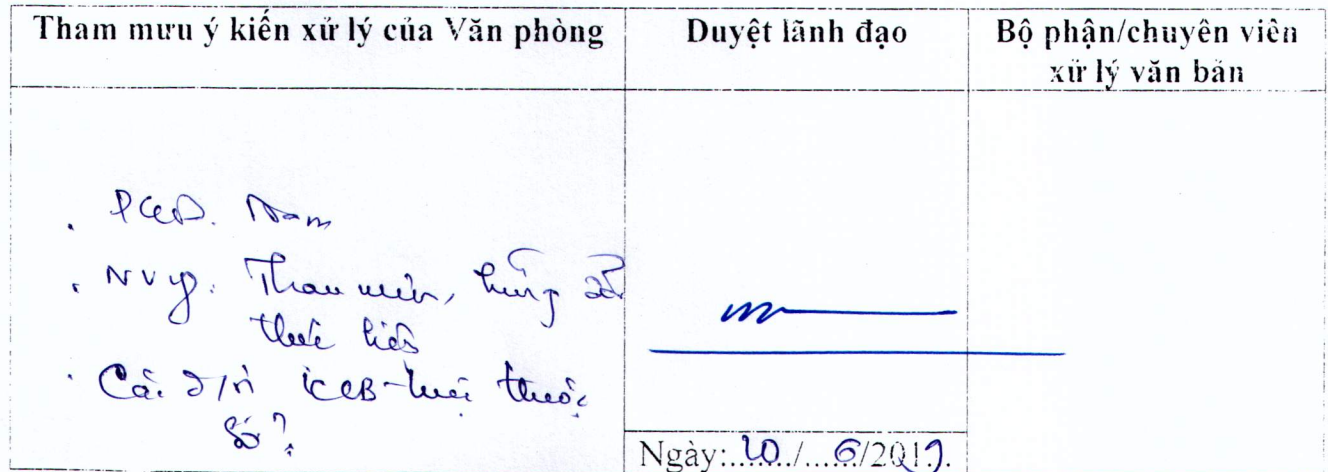 Tham mưu ý kiến xử lý của Văn phòng
Duyệt lãnh đạo
Bộ phận/chuyên viên
xử lý văn bản
. PGĐ. Nam
. NVY. Tham mưu, hướng dẫn
thực hiện
. Các đ/vị KCB
thuộc
Sở
Ngày: 20/ 6/2019.